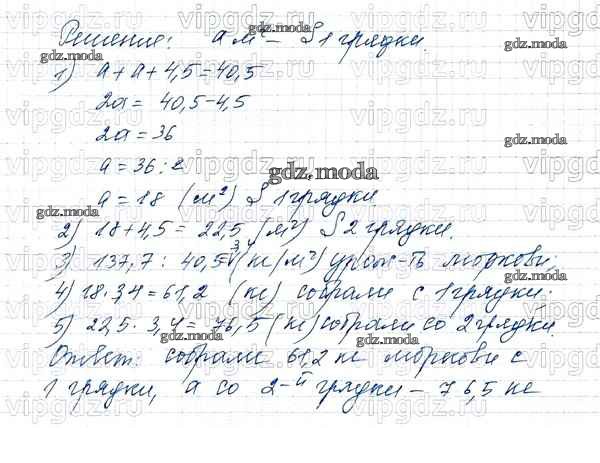 Решение: а м² — S 1 грядки.
1) а + а + 4,5 = 40,5
2а = 40,5 - 4,5
2а = 36
а = 36 : 2
а = 18 (м²) S 1 грядки
2) 18 + 4,5 = 22,5 (м²) S 2 грядки.
3) 137,7 : 40,5 = 3,4 (кг/м²) урож-ть моркови.
4) 18 · 3,4 = 61,2 (кг) собрали с 1 грядки.
5) 22,5 · 3,4 = 76,5 (кг) собрали со 2 грядки.
Ответ: собрали 61,2 кг моркови с
1 грядки, а со 2-й грядки — 76,5 кг
gdz.moda
vipgdz.ru